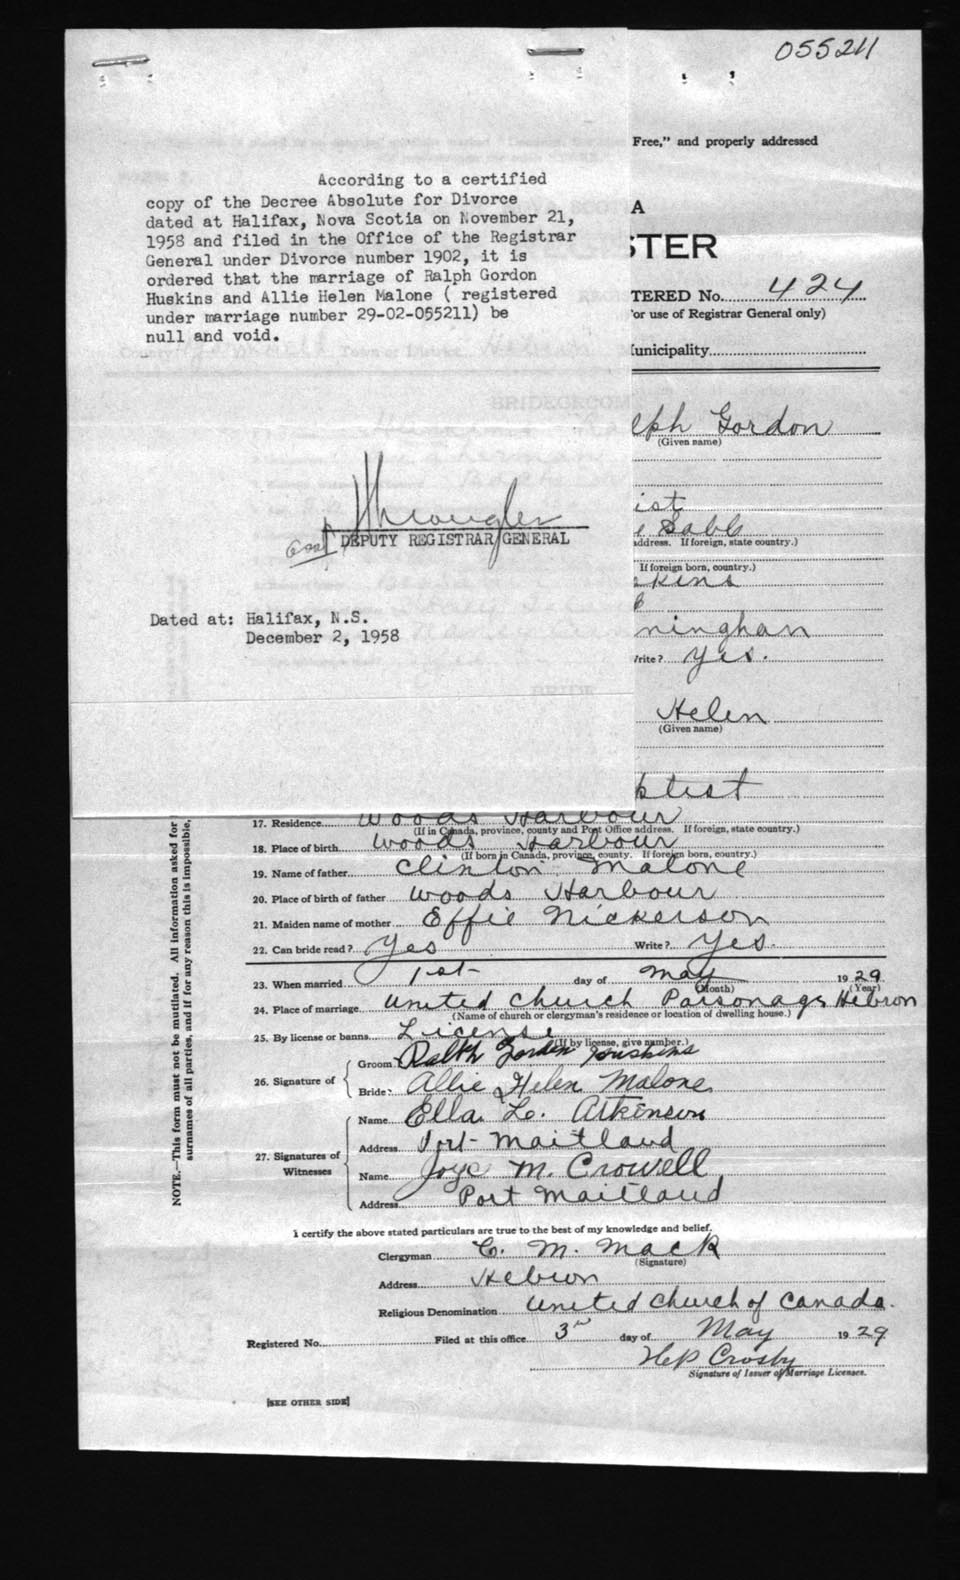 055211
Free," and properly addressed
According to a certified
copy of the Decree Absolute for Divorce
dated at Halifax, Nova Scotia on November 21,
1958 and filed in the Office of the Registrar
General under Divorce number 1902, it is
ordered that the marriage of Ralph Gordon
Huskins and Allie Helen Malone ( registered
under marriage number 29-02-055211) be
null and void.
A
STER
TERED No. 424
or use of Registrar General only)
unicipality
lph Gordon
(Given name)
ist
Sable
address. If foreign, state country.)
If foreign born, country.)
kins
DEPUTY REGISTRAR GENERAL
Dated at: Halifax, N.S.
December 2, 1958
ninghan
Write? yes.
Helen
(Given name)
BRIDEGROOM
BRIDE
ptist
17. Residence Woods Harbour
(If in Canada, province, county and Post Office address. If foreign, state country.)
18. Place of birth Woods Harbour
(If born in Canada, province, county. If foreign born, country.)
19. Name of father Clinton Malone
20. Place of birth of father Woods Harbour
21. Maiden name of mother Effie Nickerson
22. Can bride read? Yes Write? Yes.
23. When married 1st day of May 1929
(Month) (Year)
24. Place of marriage United Church Parsonage Hebron
(Name of church or clergyman's residence or location of dwelling house.)
25. By license or banns License
(If by license, give number.)
26. Signature of Groom Ralph Gorden Huskins
Bride Allie Helen Malone
27. Signatures of Witnesses Name Ella L. Atkinson
Address Port Maitland
Name Joyce M. Crowell
Address Port Maitland
NOTE.—This form must not be mutilated. All information asked for
surnames of all parties, and if for any reason this is impossible,
I certify the above stated particulars are true to the best of my knowledge and belief.
Clergyman C. M. Mack
(Signature)
Address Hebron
Religious Denomination United Church of Canada.
Registered No. Filed at this office 3rd day of May 1929
H P Crosby
Signature of Issuer of Marriage Licenses.
[SEE OTHER SIDE]